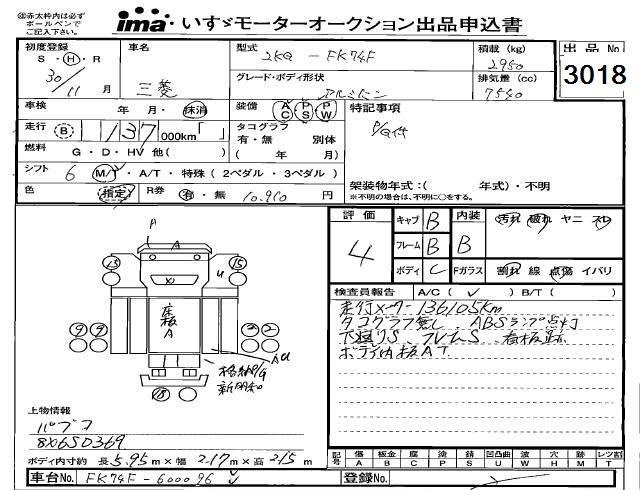 ㊟赤太枠内は必ず
ボールペンで
ご記入下さい。
ima いすゞモーターオークション出品申込書
初度登録
S・H・R
30/11 月
車名
三菱
型式
2KG - FK74F
グレード・ボディ形状
アルミバン
積載 (kg)
2950
排気量 (cc)
7540
出品 No
3018
車検
年・月・抹消
装備
AC PS PW
特記事項
P/G付
走行 B 137 000km「 」
タコグラフ
有・無 別体
( 年 月)
燃料 G・D・HV 他( )
シフト 6 M/T・A/T・特殊(2ペダル・3ペダル)
架装物年式:( 年式)・不明
※不明の場合は、不明に○をする。
色 (指定) R券 有・無 10,910 円
評価
4
キャブ B
フレーム B
ボディ C
内装
B
Fガラス
汚れ・破れ・ヤニ・スレ
割れ・線・点傷・イバリ
検査員報告 A/C( ✓ ) B/T( )
走行メーター136105km
タコグラフ無し、ABSランプ点灯
下廻りS、フレームS、看板跡
ボディ内板AT
A
A
15
15
W
U
床板
A
9 9
3 2
AU
格納P/G
新明和
18
上物情報
パブコ
8X6SD369
ボディ内寸約 長 5.95 m×幅 2.17 m×高 2.15 m
記号
傷 A
板金 B
腐 C
塗 P
錆 S
凹凸曲 U
波 W
穴 H
跡 M
レンズ割 T
車台No. FK74F-600096
登録No.